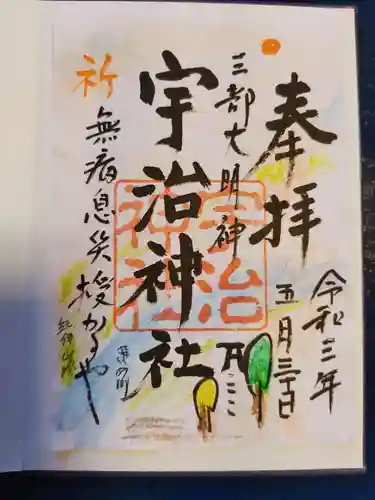 奉拝
令和三年
五月三十日
三部大明神
宇治神社
宇治
神社
祈
無病息災授かるや